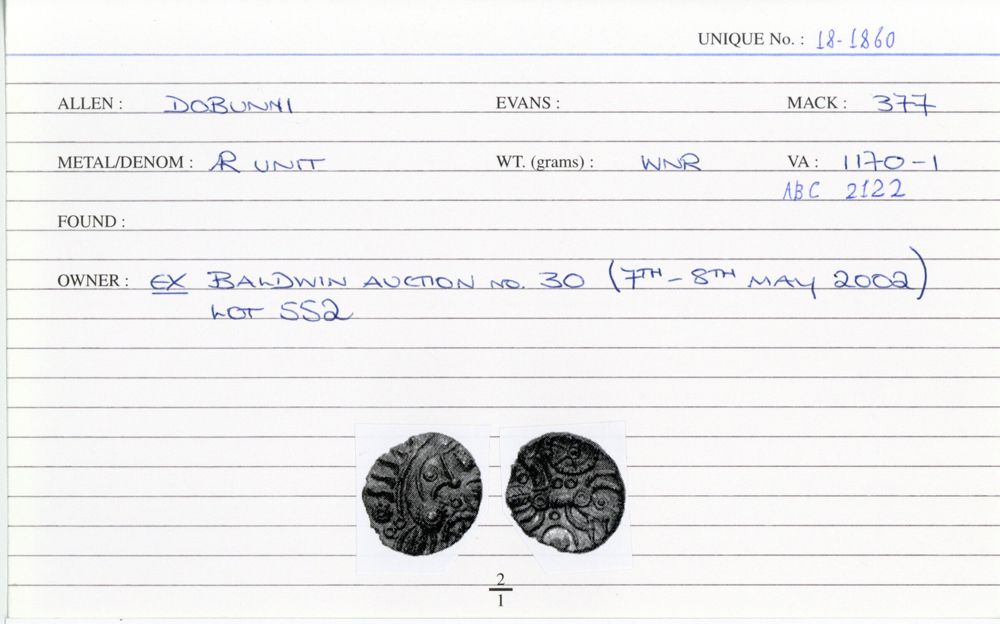 UNIQUE No. : 18-1860
ALLEN : DOBUNNI EVANS : MACK : 377
METAL/DENOM : AR UNIT WT. (grams) : WNR VA : 1170-1
ABC 2122
FOUND :
OWNER : EX BALDWIN AUCTION NO. 30 (7TH - 8TH MAY 2002)
LOT 552
2
1